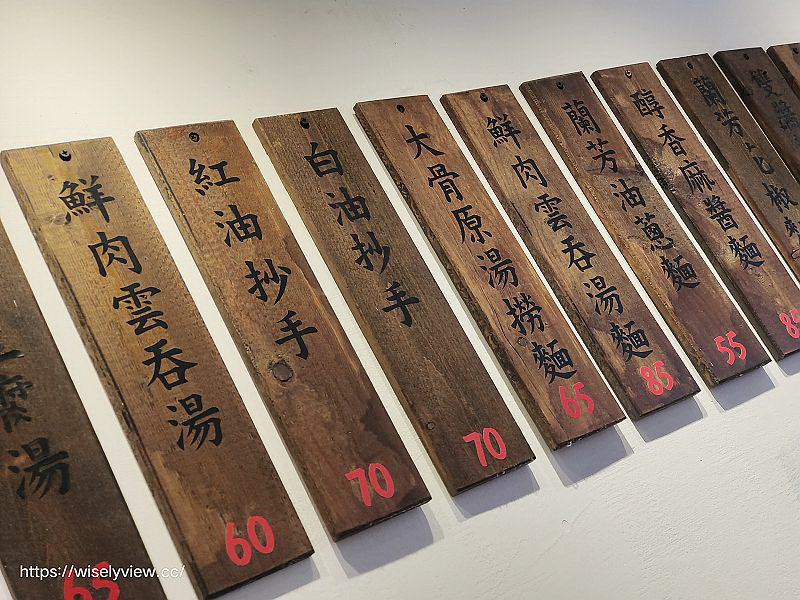 腐湯
65
鮮肉雲吞湯
60
紅油抄手
70
白油抄手
70
大骨原湯撈麵
65
鮮肉雲吞湯麵
85
蘭芳油蔥麵
55
醇香麻醬麵
85
蘭芳花椒
雙醬
https://wiselyview.cc/